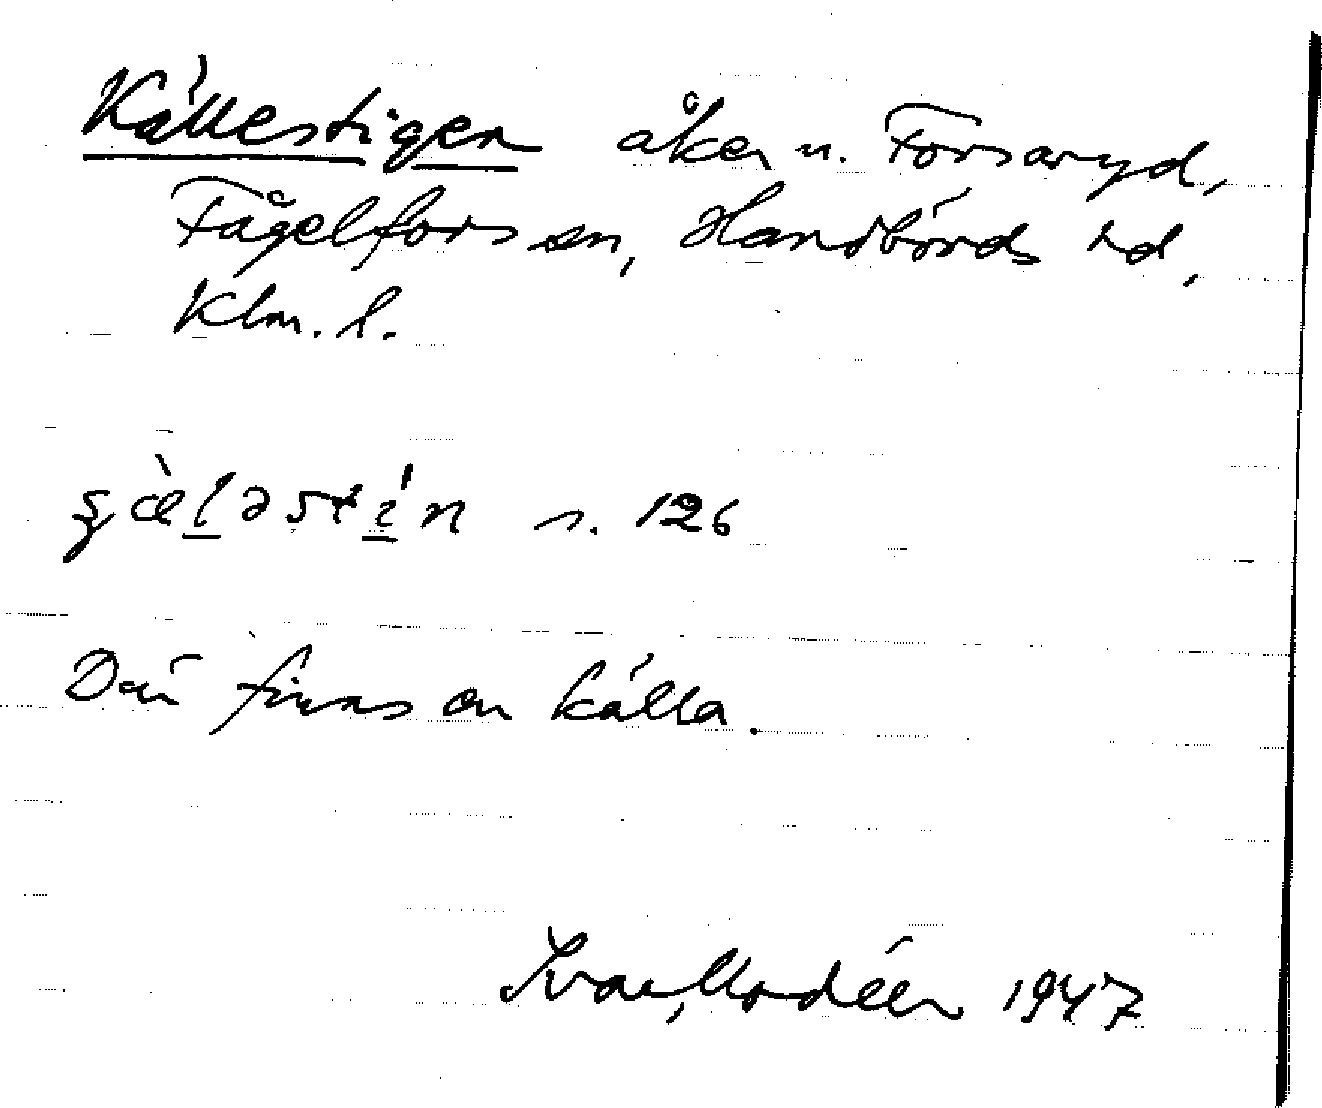 Källestigen åker n. Forsaryd,
Fågelfors sn, Handbörds hd,
Klm. l.
s. 126
Där finns en källa.
Ivar Modéer 1947